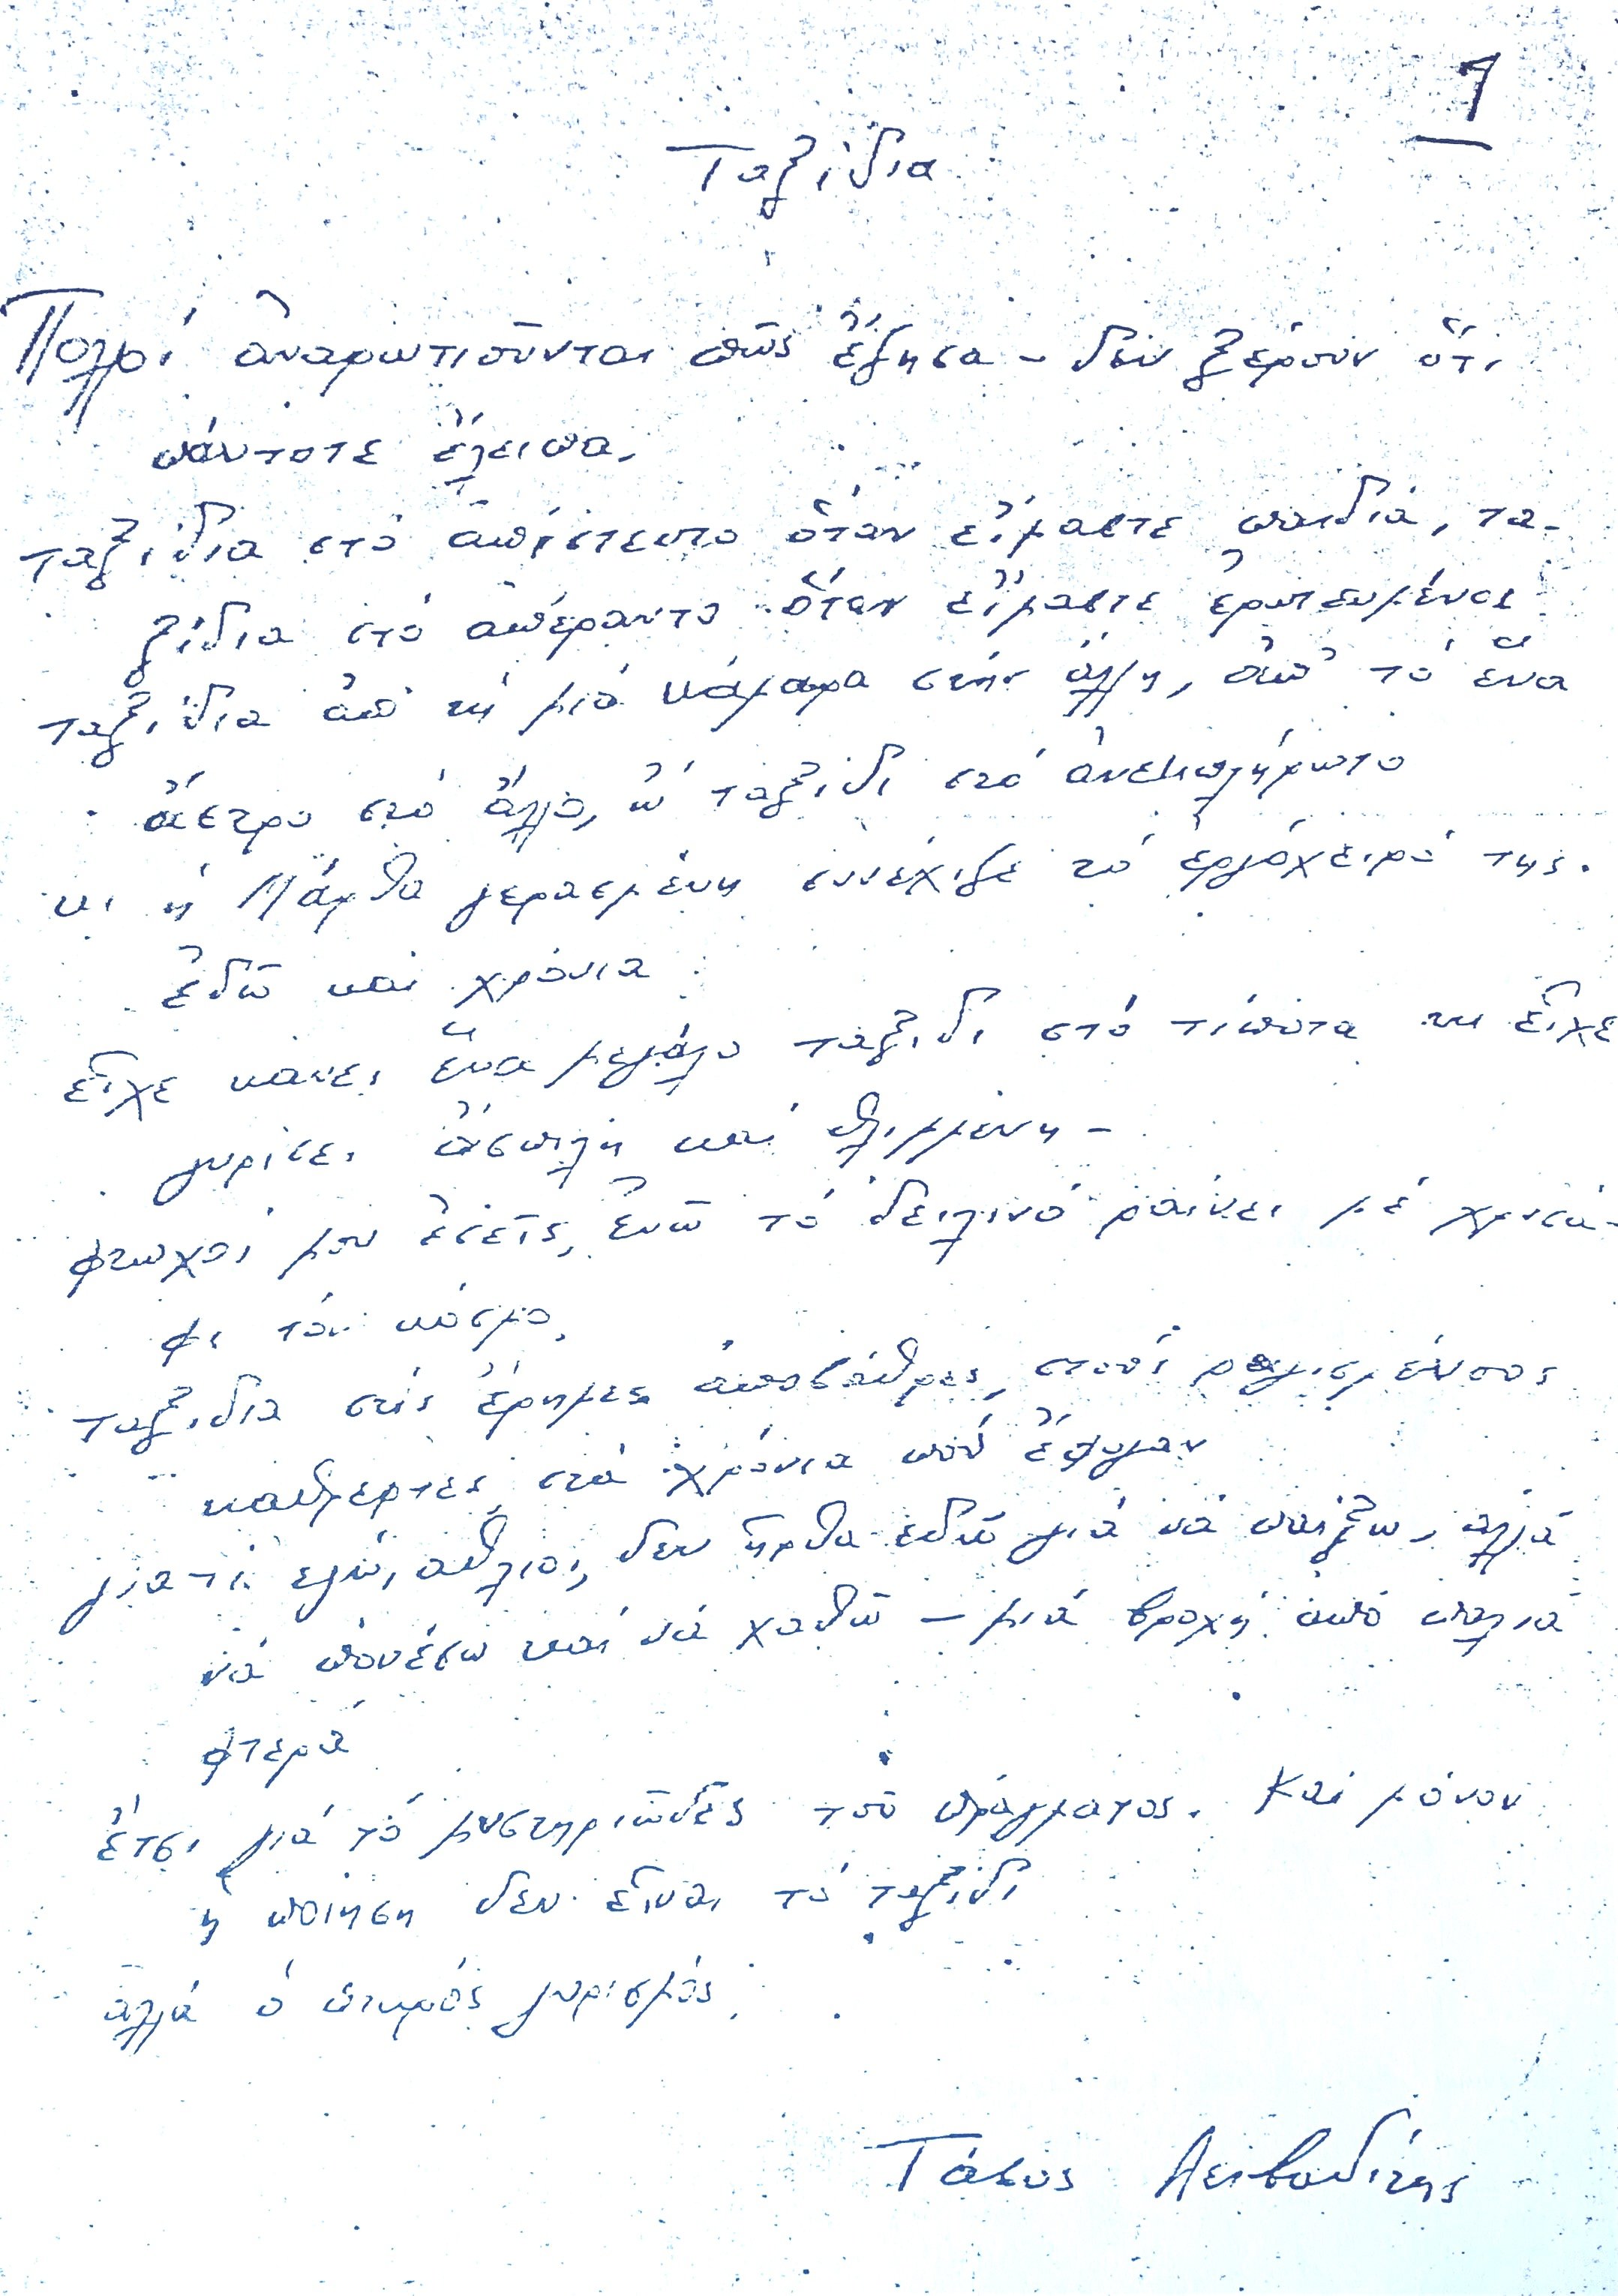 1
Ταξίδια
Πολλοί ἀναρωτιοῦνται πῶς ἔζησα – δέν ξέρουν ὅτι
πάντοτε ἔλειπα,
ταξίδια στό ἀπίστευτο ὅταν εἴμαστε παιδιά, τα-
ξίδια στό ἀπέραντο ὅταν εἴμαστε ἐρωτευμένοι
ταξίδια ἀπ' τή μιά κάμαρα στήν ἄλλη, ἀπ' τό ἕνα
ἄστρο στό ἄλλο, ὤ ταξίδι στό ἀνεκπλήρωτο
κι ἡ Μάρθα γερασμένη συνέχιζε τό ἐργόχειρό της.
ἐδῶ καί χρόνια
εἶχε κάνει ἕνα μεγάλο ταξίδι στό τίποτα κι εἶχε
γυρίσει ἄσπιλη καί θλιμμένη –
φτωχοί μου ἐσεῖς, ἐνῶ τό δειλινό ραίνει μέ χρυσά-
φι τόν κόσμο,
ταξίδια στίς ἔρημες ἀποβάθρες, στούς ραγισμένους
καθρέφτες, στά χρόνια πού ἔφυγαν
γιατί ἐγώ, ἄθλιοι, δεν ἦρθα ἐδῶ γιά νά παίξω, ἀλλά
νά πονέσω καί νά χαθῶ – μιά βροχή ἀπό παλιά
φτερά
ἔτσι γιά τό μυστηριῶδες τοῦ πράγματος. Καί μόνον
ἡ ποίηση δεν εἶναι τό ταξίδι
ἀλλά ὁ πικρός γυρισμός.
Τάσος Λειβαδίτης